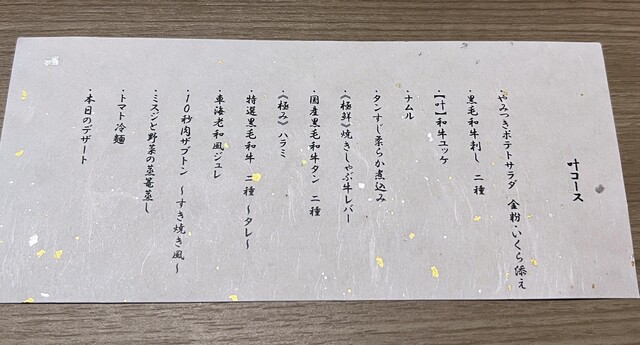 叶コース
・やみつきポテトサラダ 金粉・いくら添え
・黒毛和牛刺し 二種
・【叶】和牛ユッケ
・ナムル
・タンすじ柔らか煮込み
・《極鮮》焼きしゃぶ牛レバー
・国産黒毛和牛タン 二種
・《極み》ハラミ
・特選黒毛和牛 二種 ～タレ～
・車海老和風ジュレ
・10秒肉ザブトン ～すき焼き風～
・ミスジと野菜の蒸篭蒸し
・トマト冷麺
・本日のデザート